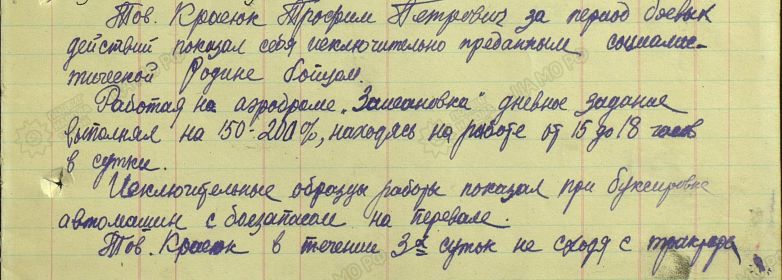 Тов. Краеюк Трофим Петрович за период боевых
действий показал себя исключительно преданным социалис-
тической Родине бойцом.
Работая на аэродроме "Замановка" дневное задание
выполнял на 150-200%, находясь на работе от 15 до 18 часов
в сутки.
Исключительные образцы работы показал при буксировке
автомашин с боезапасом на перевале.
Тов. Краеюк в течении 3х суток не сходя с трактора